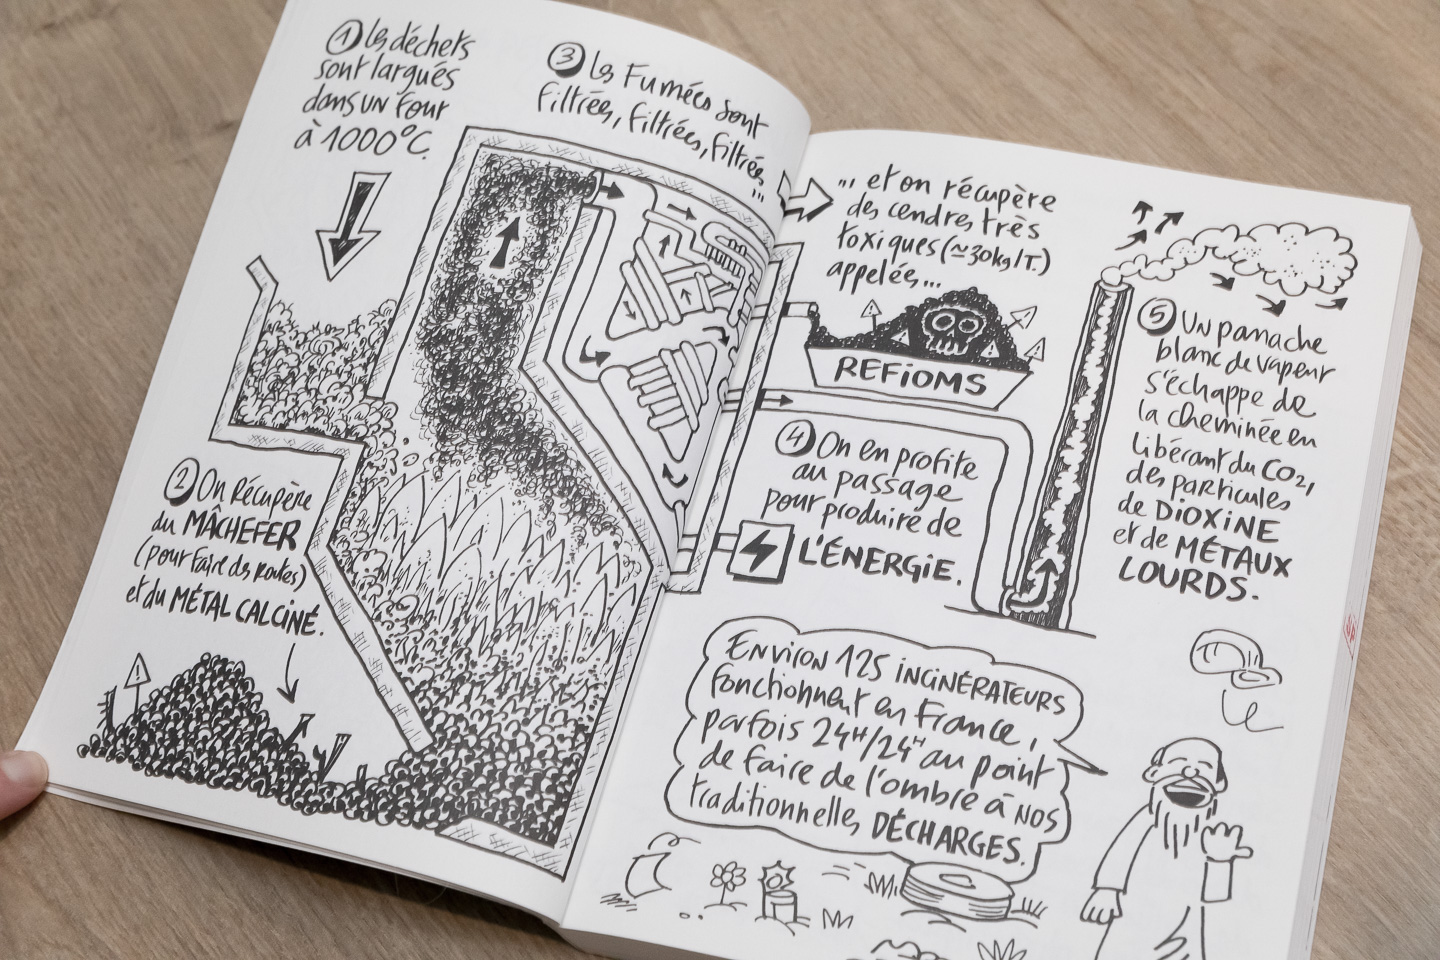 ① les déchets
sont largués
dans un four
à 1000°C.
② On Récupère
du MÂCHEFER
(pour faire des routes)
et du MÉTAL CALCINÉ.
③ les Fumées sont
filtrées, filtrées, filtrées
...
... et on récupère
des cendres très
toxiques (≃30kg/T.)
appelées...
REFIOMS
④ On en profite
au passage
pour produire de
L'ÉNERGIE.
⑤ Un panache
blanc de vapeur
s'échappe de
la cheminée en
libérant du CO2,
des particules
de DIOXINE
et de MÉTAUX
LOURDS.
ENVIRON 125 INCINÉRATEURS
fonctionnent en France,
parfois 24H/24H au point
de faire de l'ombre à NOS
traditionnelles DÉCHARGES.